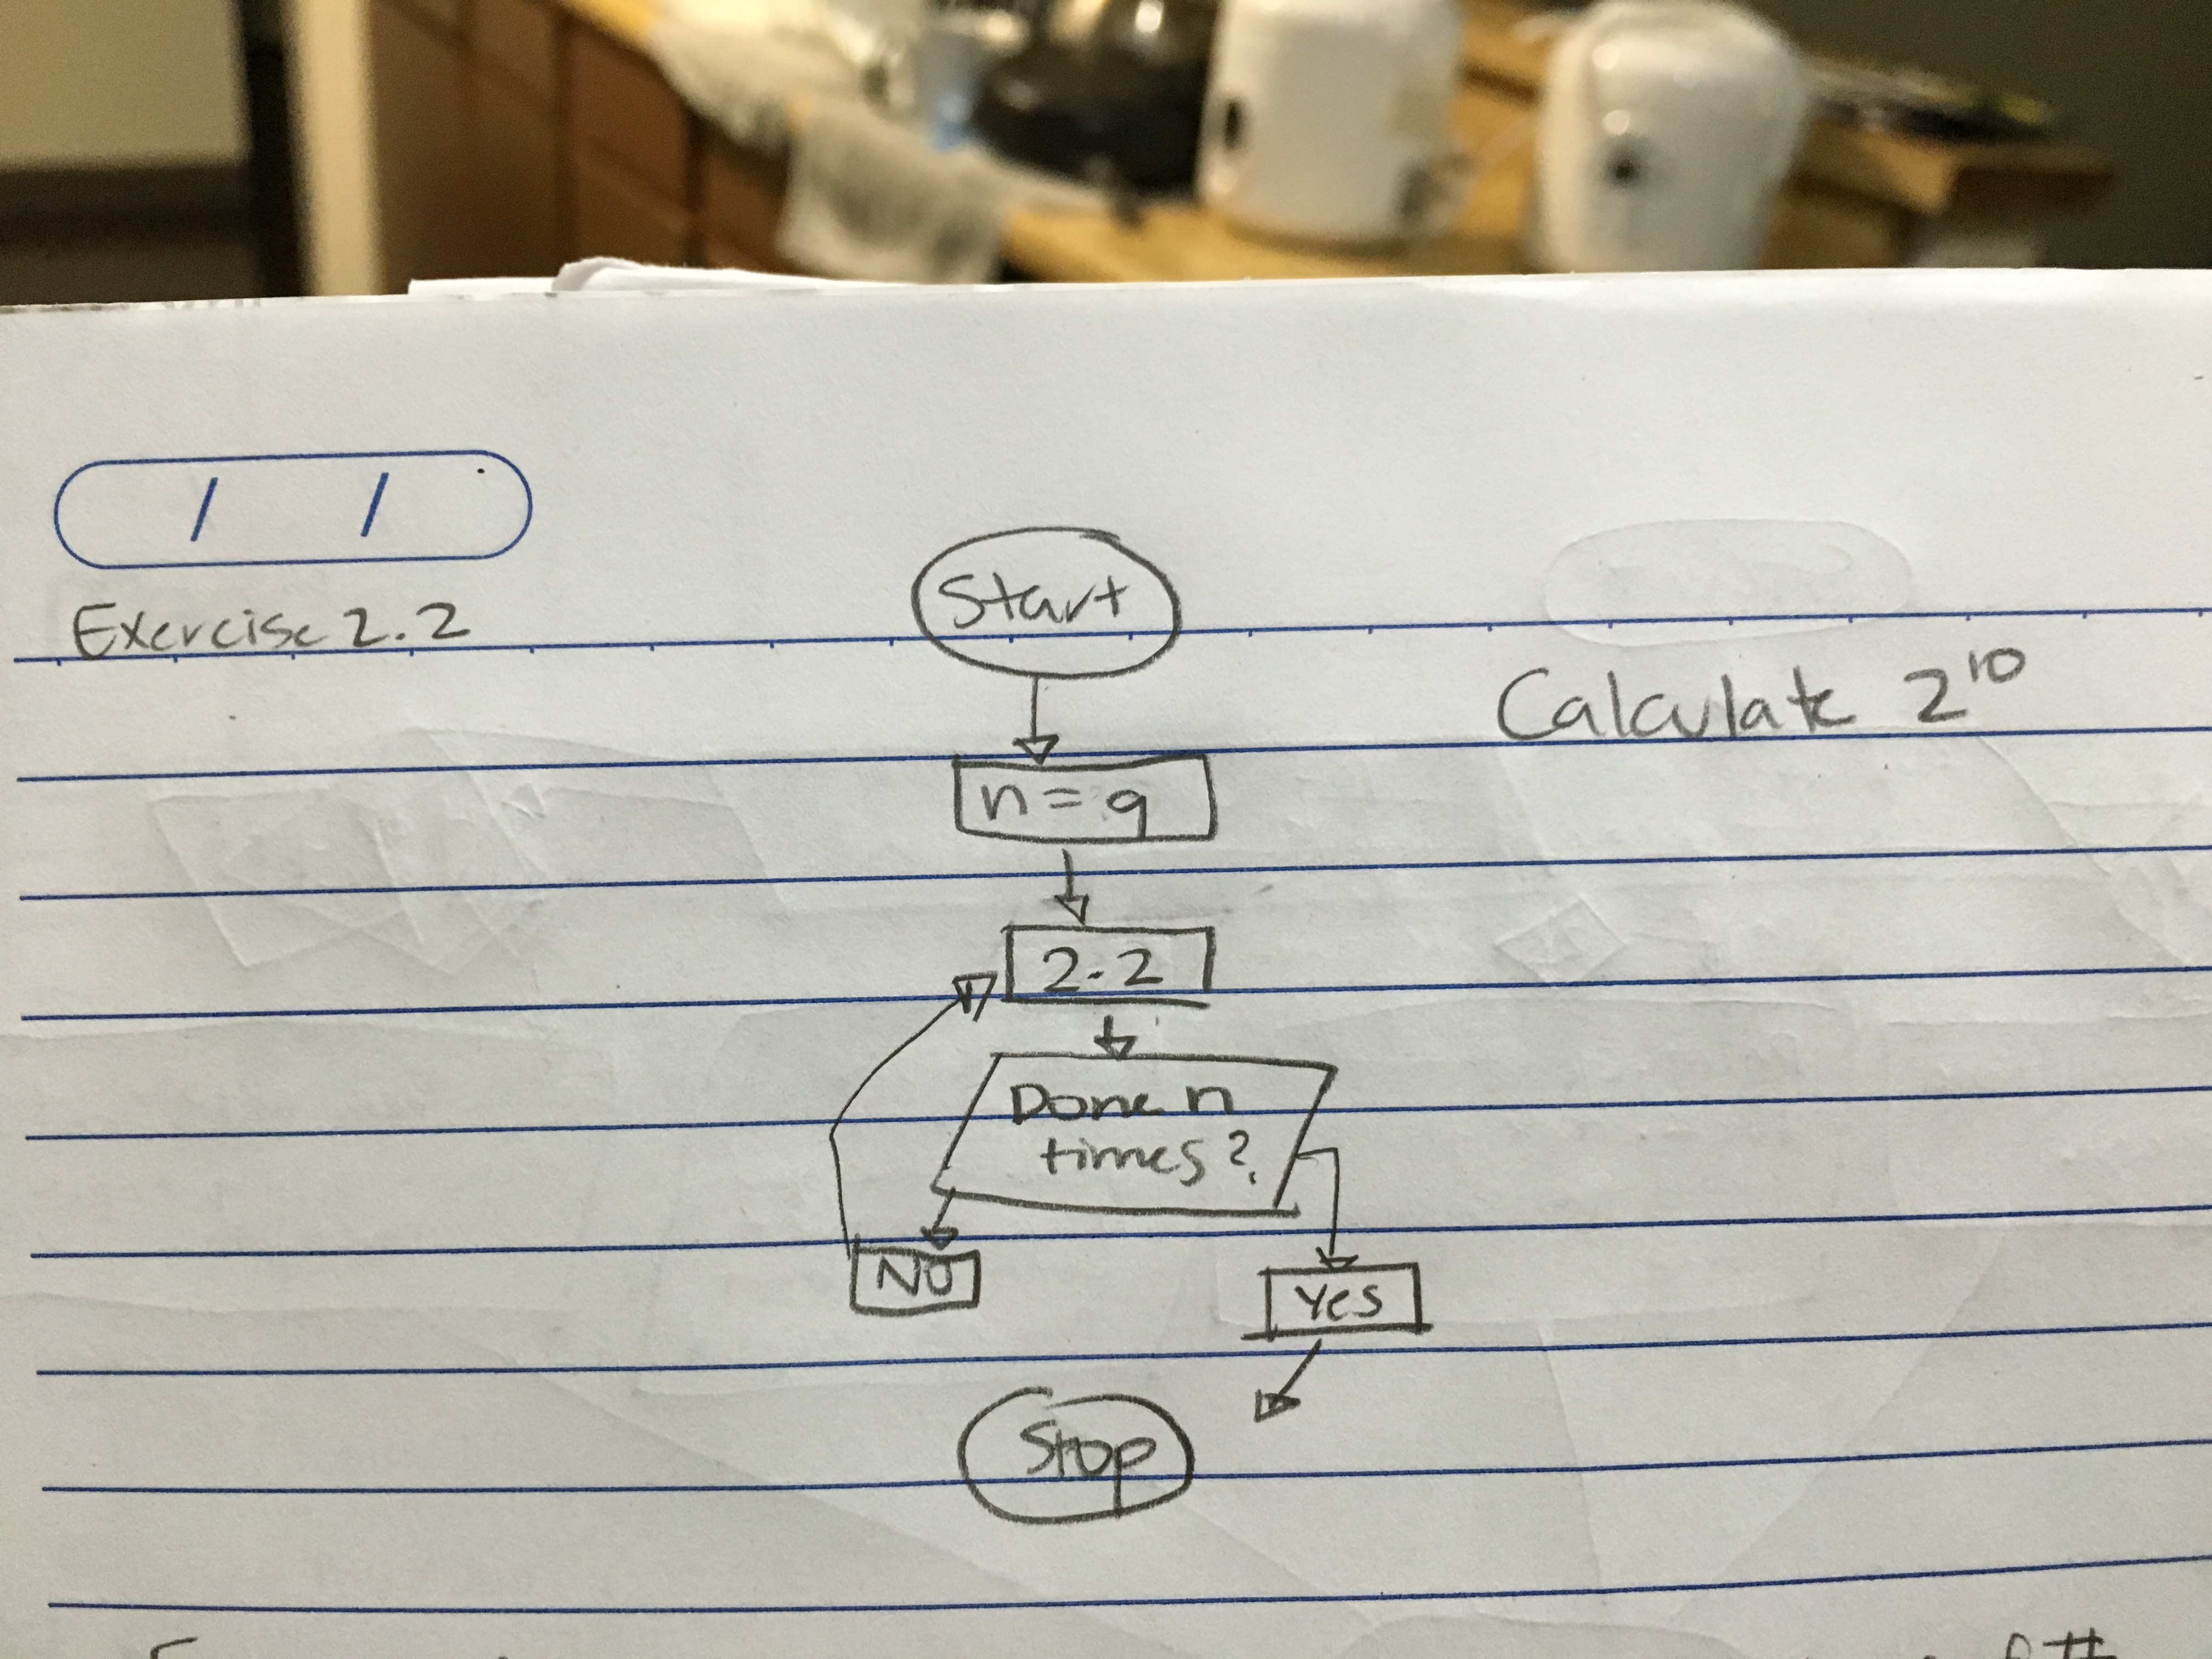 / /
Exercise 2.2
Start
Calculate 2¹⁰
n = 9
2.2
Done n
times?
No
Yes
Stop